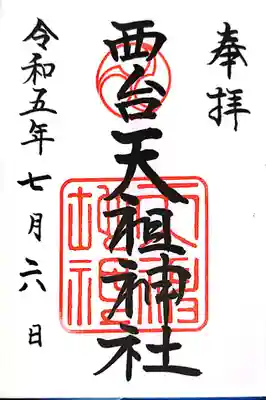 奉拝
西台天祖神社
天祖神社
令和五年七月二六日